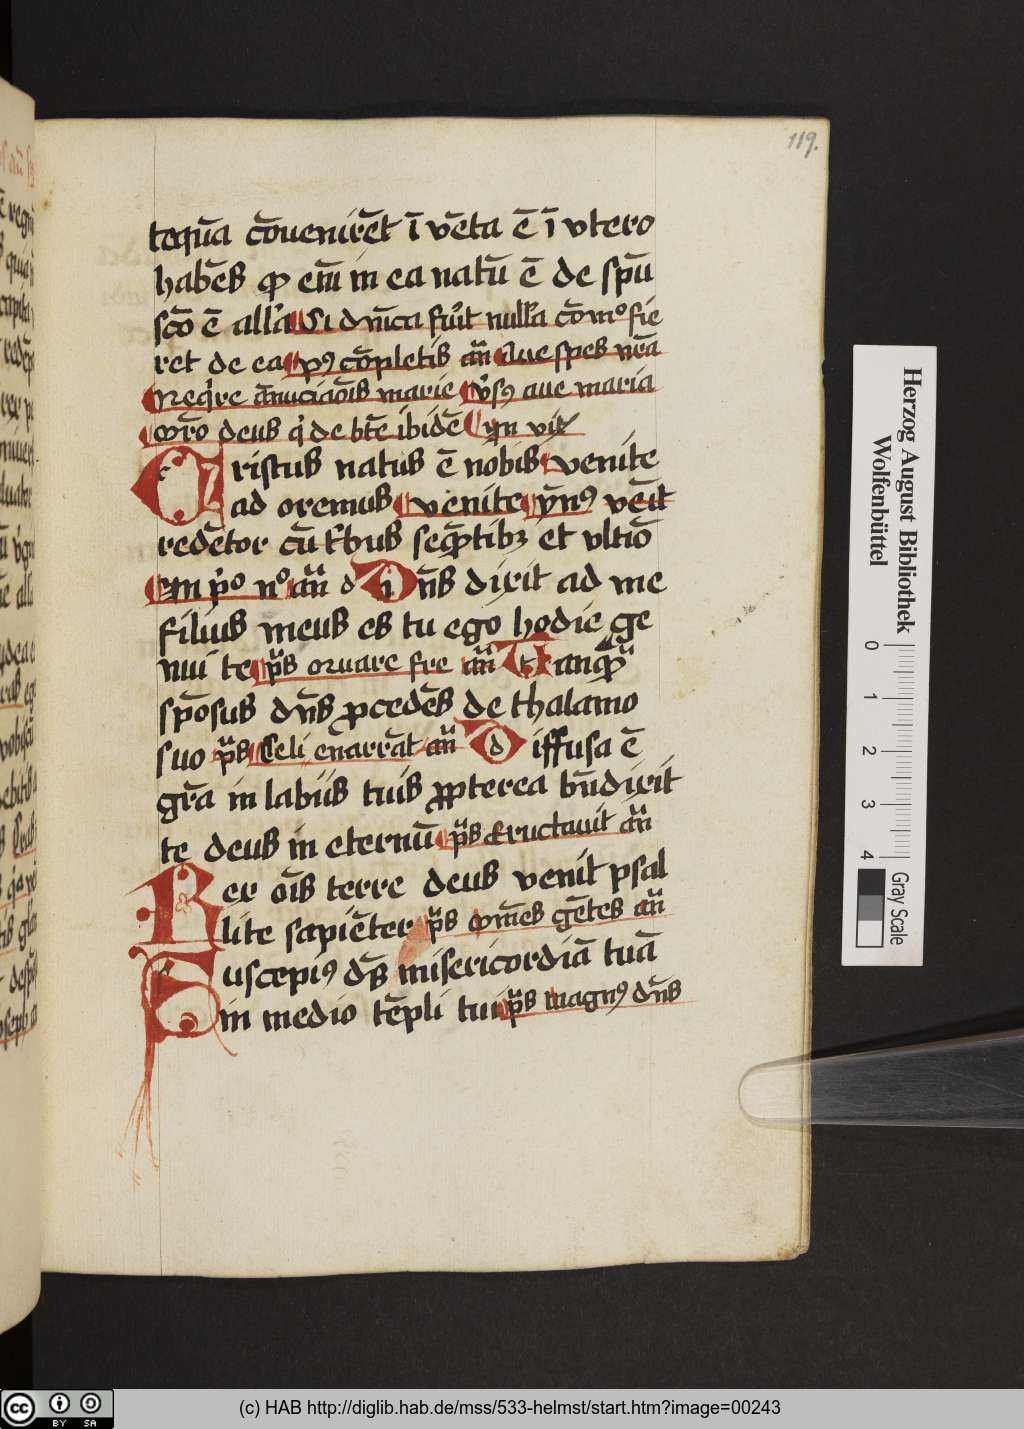 119.
teqūa cōuenirēt ī vēta ē ī vtero
habēs ꝙ em̄ in ea natū ē de spū
scō ē all'a Si dn̄ica fu'it null'a cōmo fie
ret de ea p9 cōpletis an̄ Aue spes nrā
Req're ānūciaōis marie v'sꝰ aue maria
oro deus q' de btē ibidē yn vit
Cristus natus ē nobis venite
ad oremus venite ynꝰ vēit
redētor cū tribus seqētibꝫ et vltiō
em p'o n° an̄ Dn̄s dixit ad me
filius meus es tu ego hodie ge
nui te p̄s qruare fre an̄ Tanqꝫ
spōsus dn̄s ꝓcedēs de thalamo
suo p̄s Celi enarrāt an̄ Diffusa ē
grā in labiis tuis ꝓpterea bn̄dixit
te deus in eternū p̄s Eructauit an̄
Rex oīs terre deus venit psal
lite sapiēter p̄s Om̄es gētes an̄
Suscepiꝰ ds̄ misericordiā tuā
in medio tēpli tui p̄s magnꝰ dn̄s
Herzog August Bibliothek
Wolfenbüttel
0 1 2 3 4
Gray Scale
cc BY SA
(c) HAB http://diglib.hab.de/mss/533-helmst/start.htm?image=00243